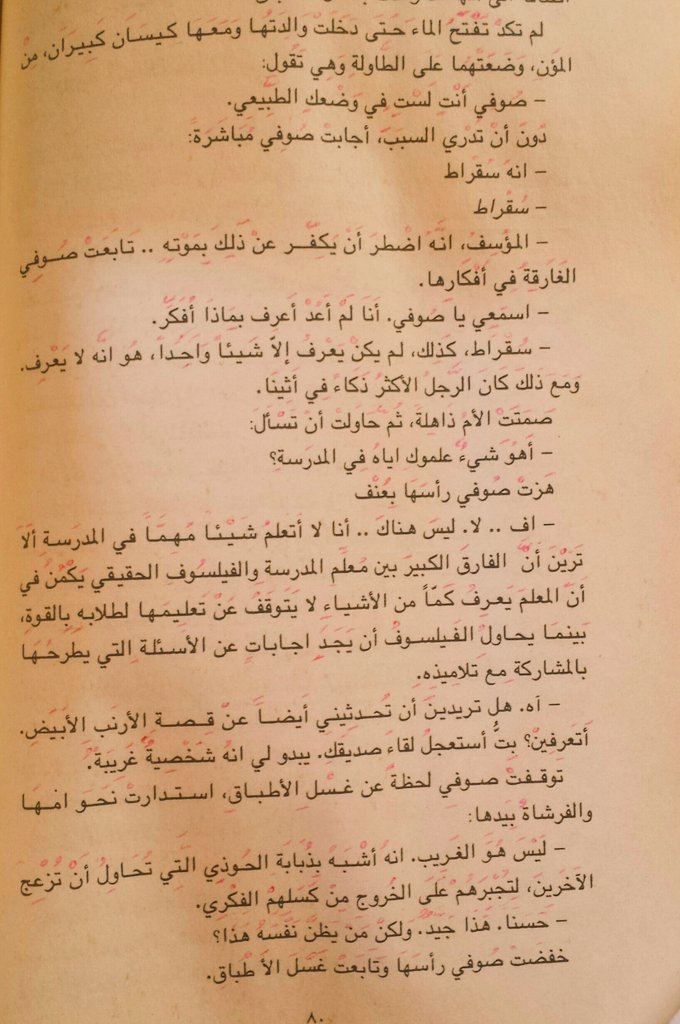 لم تكدْ تَفْتَحُ الماءَ حَتى دَخَلَتْ والدتها وَمَعَهَا كيسَان كَبِيران، مِنْ
المؤن، وضَعَتْهما على الطاولة وَهي تَقول:
– صَوفي أنْتِ لَستِ فِي وَضْعكِ الطَبِيعي.
دُونَ أنْ تَدْري السببَ، أجابتْ صُوفي مُبَاشَرَةً:
– انهُ سُقْراط
– سُقراط
– المؤسِفُ، انَهُ اضْطرَ أنْ يَكفّر عنْ ذَلِكَ بِمَوْتِهِ .. تَابَعَتْ صُوفي
الغَارِقَةُ في أفكَارها.
– اسمَعِي يا صَوفي. أنَا لَمْ أعُدْ أعرف بمَاذَا أفكَر.
– سُقَراط، كَذلك، لم يكنْ يَعْرفُ إلاّ شَيئاً وَاحِداً، هُو انَه لا يَعْرِف.
وَمَعَ ذلكَ كَانَ الرّجلُ الأكثرُ ذكَاءً في أثينَا.
صَمتَتْ الأمُ ذَاهلةً، ثُمَّ حَاولتْ أنْ تَسْأل:
– أهوَ شَيءٌ علموك اياهُ في المدرسةِ؟
هَزتْ صُوفي رأسَهَا بِعُنْف
– اف .. لا. ليسَ هناكَ .. أنا لا أتعلمُ شَيْئا مُهِمَّاً في المدرَسة ألاَ
تَريْنَ أنَّ الفارقَ الكبيرَ بين مُعلّم المدرسة والفيلسوف الحقيقي يَكْمُنُ في
أنَ المعلمَ يَعرفُ كَمّاً من الأشياء لا يَتَوقَفُ عَنْ تَعليمَها لطلابه بالقوة،
بَينمَا يحاولُ الفَيلسوفُ أن يَجَدَ اجابَاتٍ عن الأسئلة التي يطرحُهَا
بالمشاركةِ مِعَ تلاميذه.
– آه. هل تريدينَ أن تُحدثِيني أيضاً عنْ قصةِ الأرنب الأبيَض.
أتَعرفينْ؟ بِتُّ أستعجلُ لقاءَ صديقك. يبدو لي انهُ شَخْصِيةُ غَريبَة.
توقفتْ صوفي لحظةً عن غسْلِ الأطباق، استدارتْ نحوَ امهَا
والفرشاةُ بيدها:
– لَيْسَ هُوَ الغَريب. انهُ أشْبَهُ بِذُبَابَةِ الحُوذِي الَتي تُحَاولُ أنْ تُزْعج
الآخَرينَ، لِتُجْبرَهُمْ عَلَى الخُروج مِنْ كَسَلهمْ الفكْري.
– حَسنا. هَذَا جَيدٌ. ولكنْ مَن يَظنُ نَفْسَهُ هَذَا؟
خفضتْ صُوفي رأسَها وتابَعتْ غَسْلَ الأطباق.
٨٠